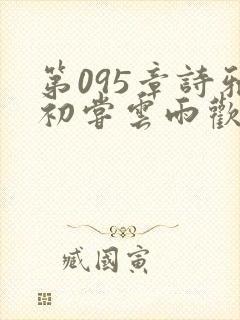 第095章詩雅
初嘗雲雨歡
臧國寅